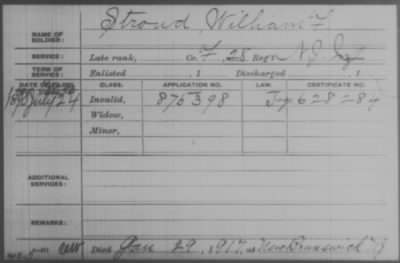 Stroud, William F.
NAME OF SOLDIER:
SERVICE: Late rank, Co. F, 28 Reg't N.J. Inf
TERM OF SERVICE: Enlisted , 1 Discharged , 1
DATE OF FILING. CLASS. APPLICATION NO. LAW. CERTIFICATE NO.
1890 July 24 Invalid, 875398 628289
Widow,
Minor,
ADDITIONAL SERVICES:
REMARKS:
Died Jan 29, 1917, at New Brunswick NJ